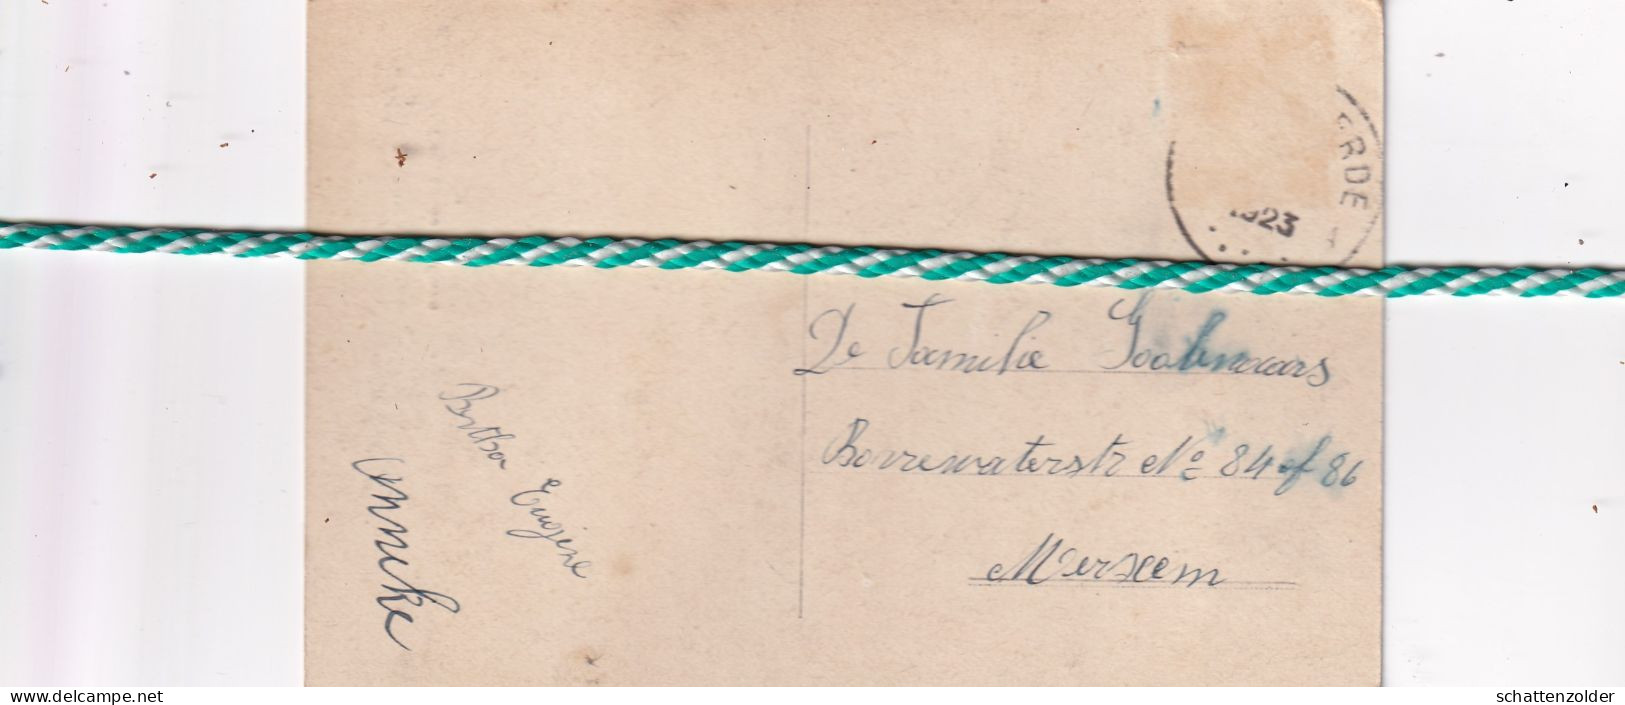 RDE
1923
De Familie
Borrewaterstr No 84 of 86
Merxem
Bertha Eugène
Anneke
www.delcampe.net
schattenzolder